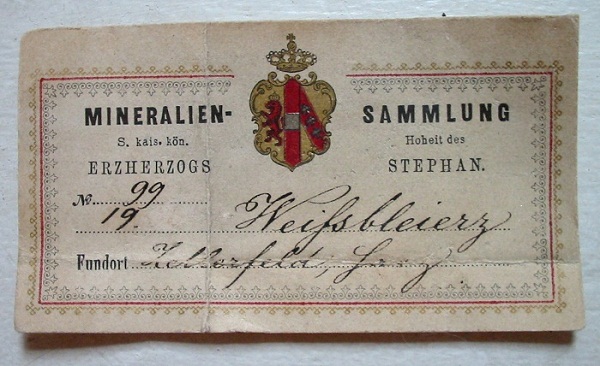 MINERALIEN- SAMMLUNG
S. kais. kön. Hoheit des
ERZHERZOGS STEPHAN.
No. 99
19. Weißbleierz
Fundort Zellerfeld, Harz